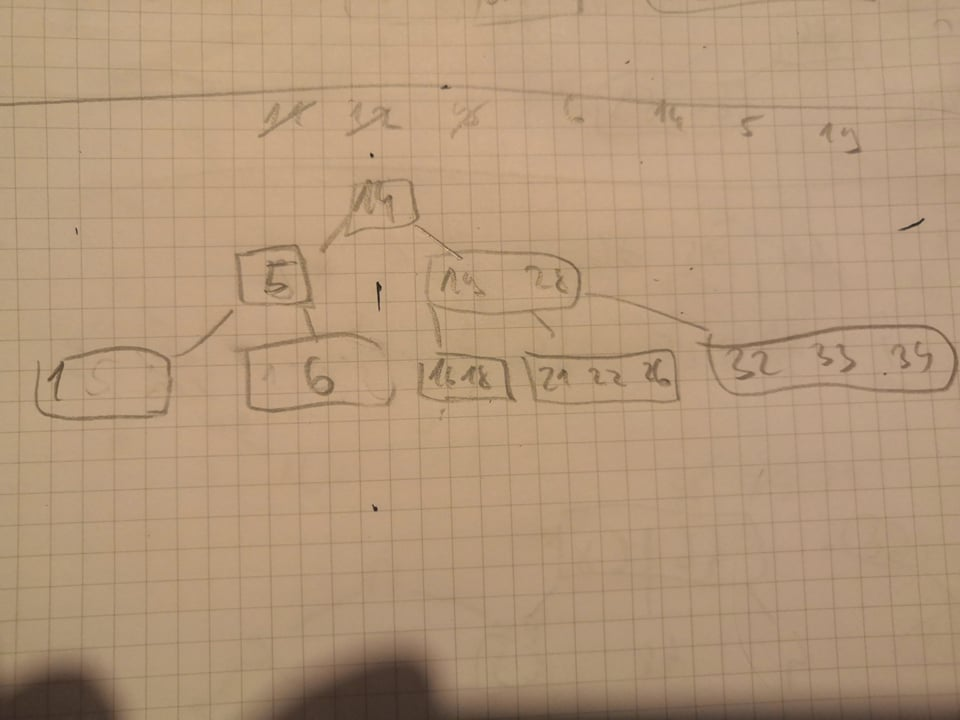 6 14 5 19
14
5 19 28
1 6 16 18 21 22 26 32 33 34